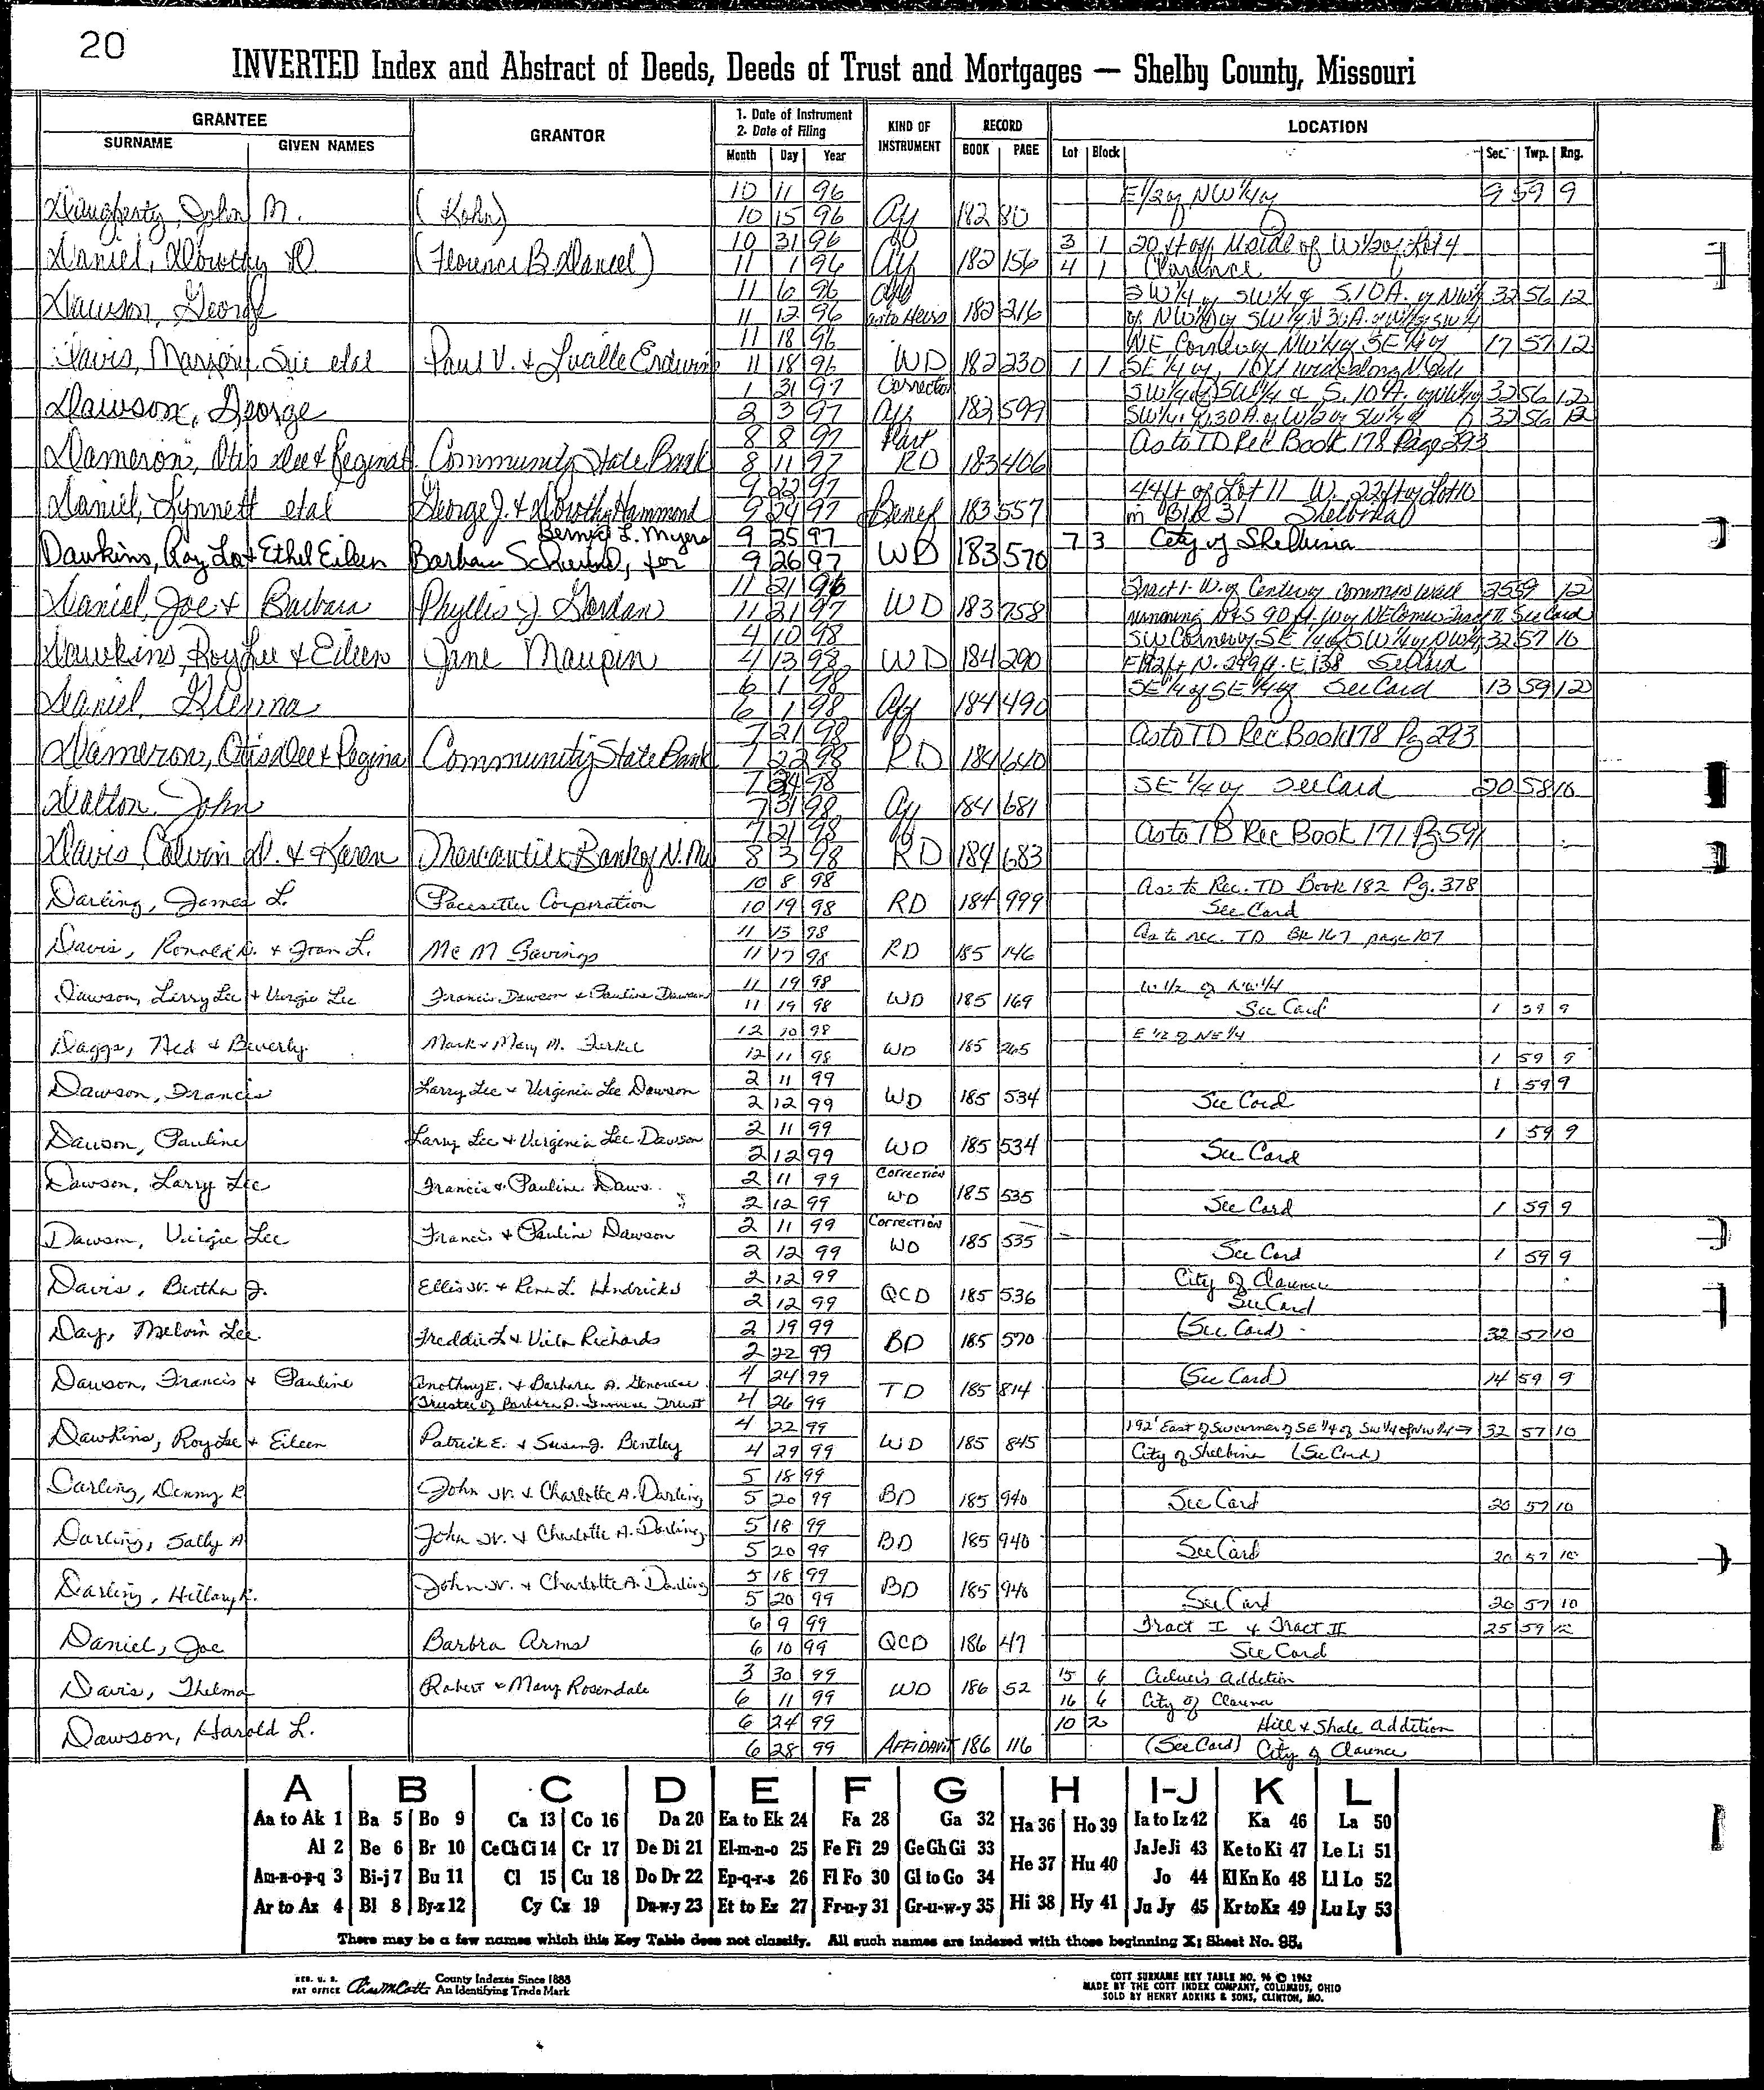 20
INVERTED Index and Abstract of Deeds, Deeds of Trust and Mortgages — Shelby County, Missouri
GRANTEE
SURNAME GIVEN NAMES
GRANTOR
1. Date of Instrument
2. Date of Filing
Month Day Year
KIND OF INSTRUMENT
RECORD
BOOK PAGE
LOCATION
Lot Block Sec. Twp. Rng.
10 11 96 E 1/2 of NW 1/4 of 9 59 9
Daugherty, John M. (Kohn) 10 15 96 Aff 182 80
10 31 96 3 1 20 ft off side of W 1/2 of Lot 4
Daniel, Dorothy D (Florence B. Daniel) 11 1 96 Aff 182 156 4 1 Clarence
11 6 96 Aff SW 1/4 of SW 1/4 & S. 10 A. of NW 1/4 32 56 12
Dawson, George 11 12 96 as to Heirs 182 216 of NW 1/4 of SW 1/4 N 30 A. of W 1/2 of SW 1/4
11 18 96 NE Corner of NW 1/4 of SE 1/4 of 17 57 12
Davis, Marjorie Sue etal Paul V. & Lucille 11 18 96 WD 182 230 1 1 SE 1/4 of, along
1 31 97 Correction SW 1/4 of SW 1/4 & S. 10 A. of NW 1/4 32 56 12
Dawson, George 2 3 97 Aff 182 599 SW 1/4 N 30 A. of W 1/2 of SW 1/4 of 32 56 12
8 8 97 Part As to TD Rec Book 178 Page 293
Dameron, Otis Dee & Regina Community State Bank 8 11 97 RD 183 406
9 22 97 44 ft of Lot 11 W. 22 ft of Lot 10
Daniel, Lynnett etal George J. & Dorothy Hammond 9 24 97 Benef 183 557 in Blk 31 Shelbina
Bernice L. Myers 9 25 97 7 3 City of Shelbina
Dawkins, Roy Lee & Ethel Eileen Barbara, for 9 26 97 WD 183 570
11 21 96 Tract I - W. of Center of common well 35 59 12
Daniel, Joe & Barbara Phyllis J. Jordan 11 21 97 WD 183 758 running N & S 90 ft. W of NE Corner Tract II See Card
4 10 98 SW Corner of SE 1/4 of SW 1/4 of NW 1/4 32 57 10
Dawkins, Roy Lee & Eileen Jane Maupin 4 13 98 WD 184 290 E 192 ft N. 299 ft. E. 138 See Card
6 1 98 SE 1/4 of SE 1/4 of See Card 13 59 12
Daniel, Glenna 6 1 98 Aff 184 490
7 21 98 As to TD Rec Book 178 Pg 293
Dameron, Otis Dee & Regina Community State Bank 7 22 98 RD 184 640
7 24 98 SE 1/4 of See Card 20 58 10
Dalton, John 7 31 98 Aff 184 681
7 21 98 As to TD Rec Book 171 Pg 591
Davis, Calvin D. & Karen Mercantile Bank of N. Mo 8 3 98 RD 184 683
10 8 98 As to Rec. TD Book 182 Pg. 378
Darling, James L. Pacesetter Corporation 10 19 98 RD 184 999 See Card
11 13 98 As to rec. TD BK 167 page 107
Davis, Ronald D. & Fran L. Mc M Savings 11 17 98 RD 185 146
11 19 98 W 1/2 of NW 1/4
Dawson, Larry Lee & Virgie Lee Francis Dawson & Pauline Dawson 11 19 98 WD 185 169 See Card 1 59 9
12 10 98 E 1/2 of NE 1/4
Daggs, Ted & Beverly Mark & Mary M. Ferkel 12 11 98 WD 185 265 1 59 9
2 11 99 1 59 9
Dawson, Francis Larry Lee & Virginia Lee Dawson 2 12 99 WD 185 534 See Card
2 11 99 1 59 9
Dawson, Pauline Larry Lee & Virginia Lee Dawson 2 12 99 WD 185 534 See Card
2 11 99 Correction
Dawson, Larry Lee Francis & Pauline Daws 2 12 99 WD 185 535 See Card 1 59 9
2 11 99 Correction
Dawson, Virgie Lee Francis & Pauline Dawson 2 12 99 WD 185 535 See Card 1 59 9
2 12 99 City of Clarence
Davis, Bertha J. Ellis W. & Rena L. Hendricks 2 12 99 QCD 185 536 See Card
2 19 99 (See Card) 32 57 10
Day, Melvin Lee Freddie L & Vicla Richards 2 22 99 BD 185 570
4 24 99 (See Card) 14 59 9
Dawson, Francis & Pauline Anothny E. & Barbara A. Genovese
Trustee of Barbara A. Genovese Trust 4 26 99 TD 185 814
4 22 99 192' East of SW corner of SE 1/4 of SW 1/4 of NW 1/4 → 32 57 10
Dawkins, Roy Lee & Eileen Patrick E. & Susan J. Bentley 4 29 99 WD 185 845 City of Shelbina (See Card)
5 18 99
Darling, Denny R John W. & Charlotte A. Darling 5 20 99 BD 185 940 See Card 20 57 10
5 18 99
Darling, Sally A John W. & Charlotte A. Darling 5 20 99 BD 185 940 See Card 20 57 10
5 18 99
Darling, Hillary K. John W. & Charlotte A. Darling 5 20 99 BD 185 940 See Card 20 57 10
6 9 99 Tract I & Tract II 25 59 12
Daniel, Joe Barbra Arms 6 10 99 QCD 186 47 See Card
3 30 99 15 6 Culver's Addition
Davis, Thelma Robert & Mary Rosendale 6 11 99 WD 186 52 16 6 City of Clarence
6 24 99 10 2 Hill & Shale Addition
Dawson, Harold L. 6 28 99 AFFIDAVIT 186 116 (See Card) City of Clarence
A B C D E F G H I-J K L
Aa to Ak 1 Ba 5 Bo 9 Ca 13 Co 16 Da 20 Ea to Ek 24 Fa 28 Ga 32 Ha 36 Ho 39 Ia to Iz 42 Ka 46 La 50
Al 2 Be 6 Br 10 Ce Ch Ci 14 Cr 17 De Di 21 El-m-n-o 25 Fe Fi 29 Ge Gh Gi 33 He 37 Hu 40 Ja Je Ji 43 Ke to Ki 47 Le Li 51
Am-n-o-p-q 3 Bi-j 7 Bu 11 Cl 15 Cu 18 Do Dr 22 Ep-q-r-s 26 Fl Fo 30 Gl to Go 34 Jo 44 Kl Kn Ko 48 Ll Lo 52
Ar to Az 4 Bl 8 By-z 12 Cy Cz 19 Du-w-y 23 Et to Ez 27 Fr-u-y 31 Gr-u-w-y 35 Hi 38 Hy 41 Ju Jy 45 Kr to Kz 49 Lu Ly 53
There may be a few names which this Key Table does not classify. All such names are indexed with those beginning X; Sheet No. 95.
REG. U. S. PAT OFFICE County Indexes Since 1888
An Identifying Trade Mark
COTT SURNAME KEY TABLE NO. 96 © 1962
MADE BY THE COTT INDEX COMPANY, COLUMBUS, OHIO
SOLD BY HENRY ADKINS & SONS, CLINTON, MO.